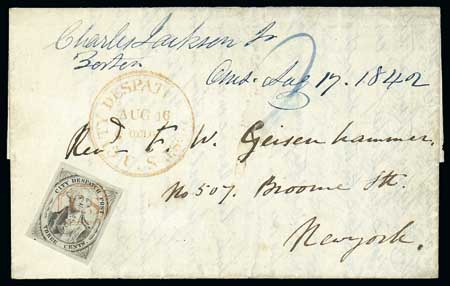 Charles Jackson Jr
Boston
Ans. Aug 17. 1842
2
CITY DESPATCH
AUG 16
U.S.
Revd. F. W. Geisenhammer
No 507. Broome Str.
Newyork.
CITY DESPATCH POST
THREE CENTS.